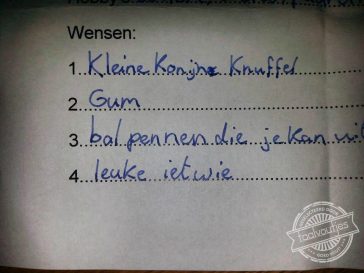 Wensen:
1. Kleine Konijne Knuffel
2. Gum
3. bal pennen die je kan
4. leuke ietwie
taalvoutjes